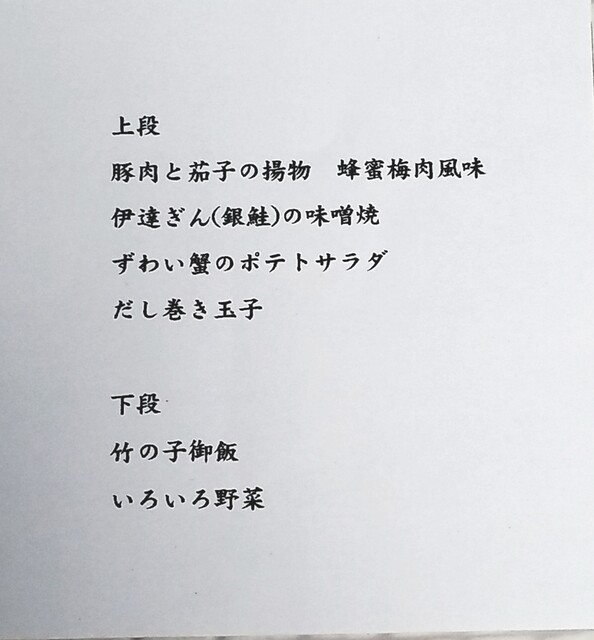 上段
豚肉と茄子の揚物　蜂蜜梅肉風味
伊達ぎん(銀鮭)の味噌焼
ずわい蟹のポテトサラダ
だし巻き玉子
下段
竹の子御飯
いろいろ野菜